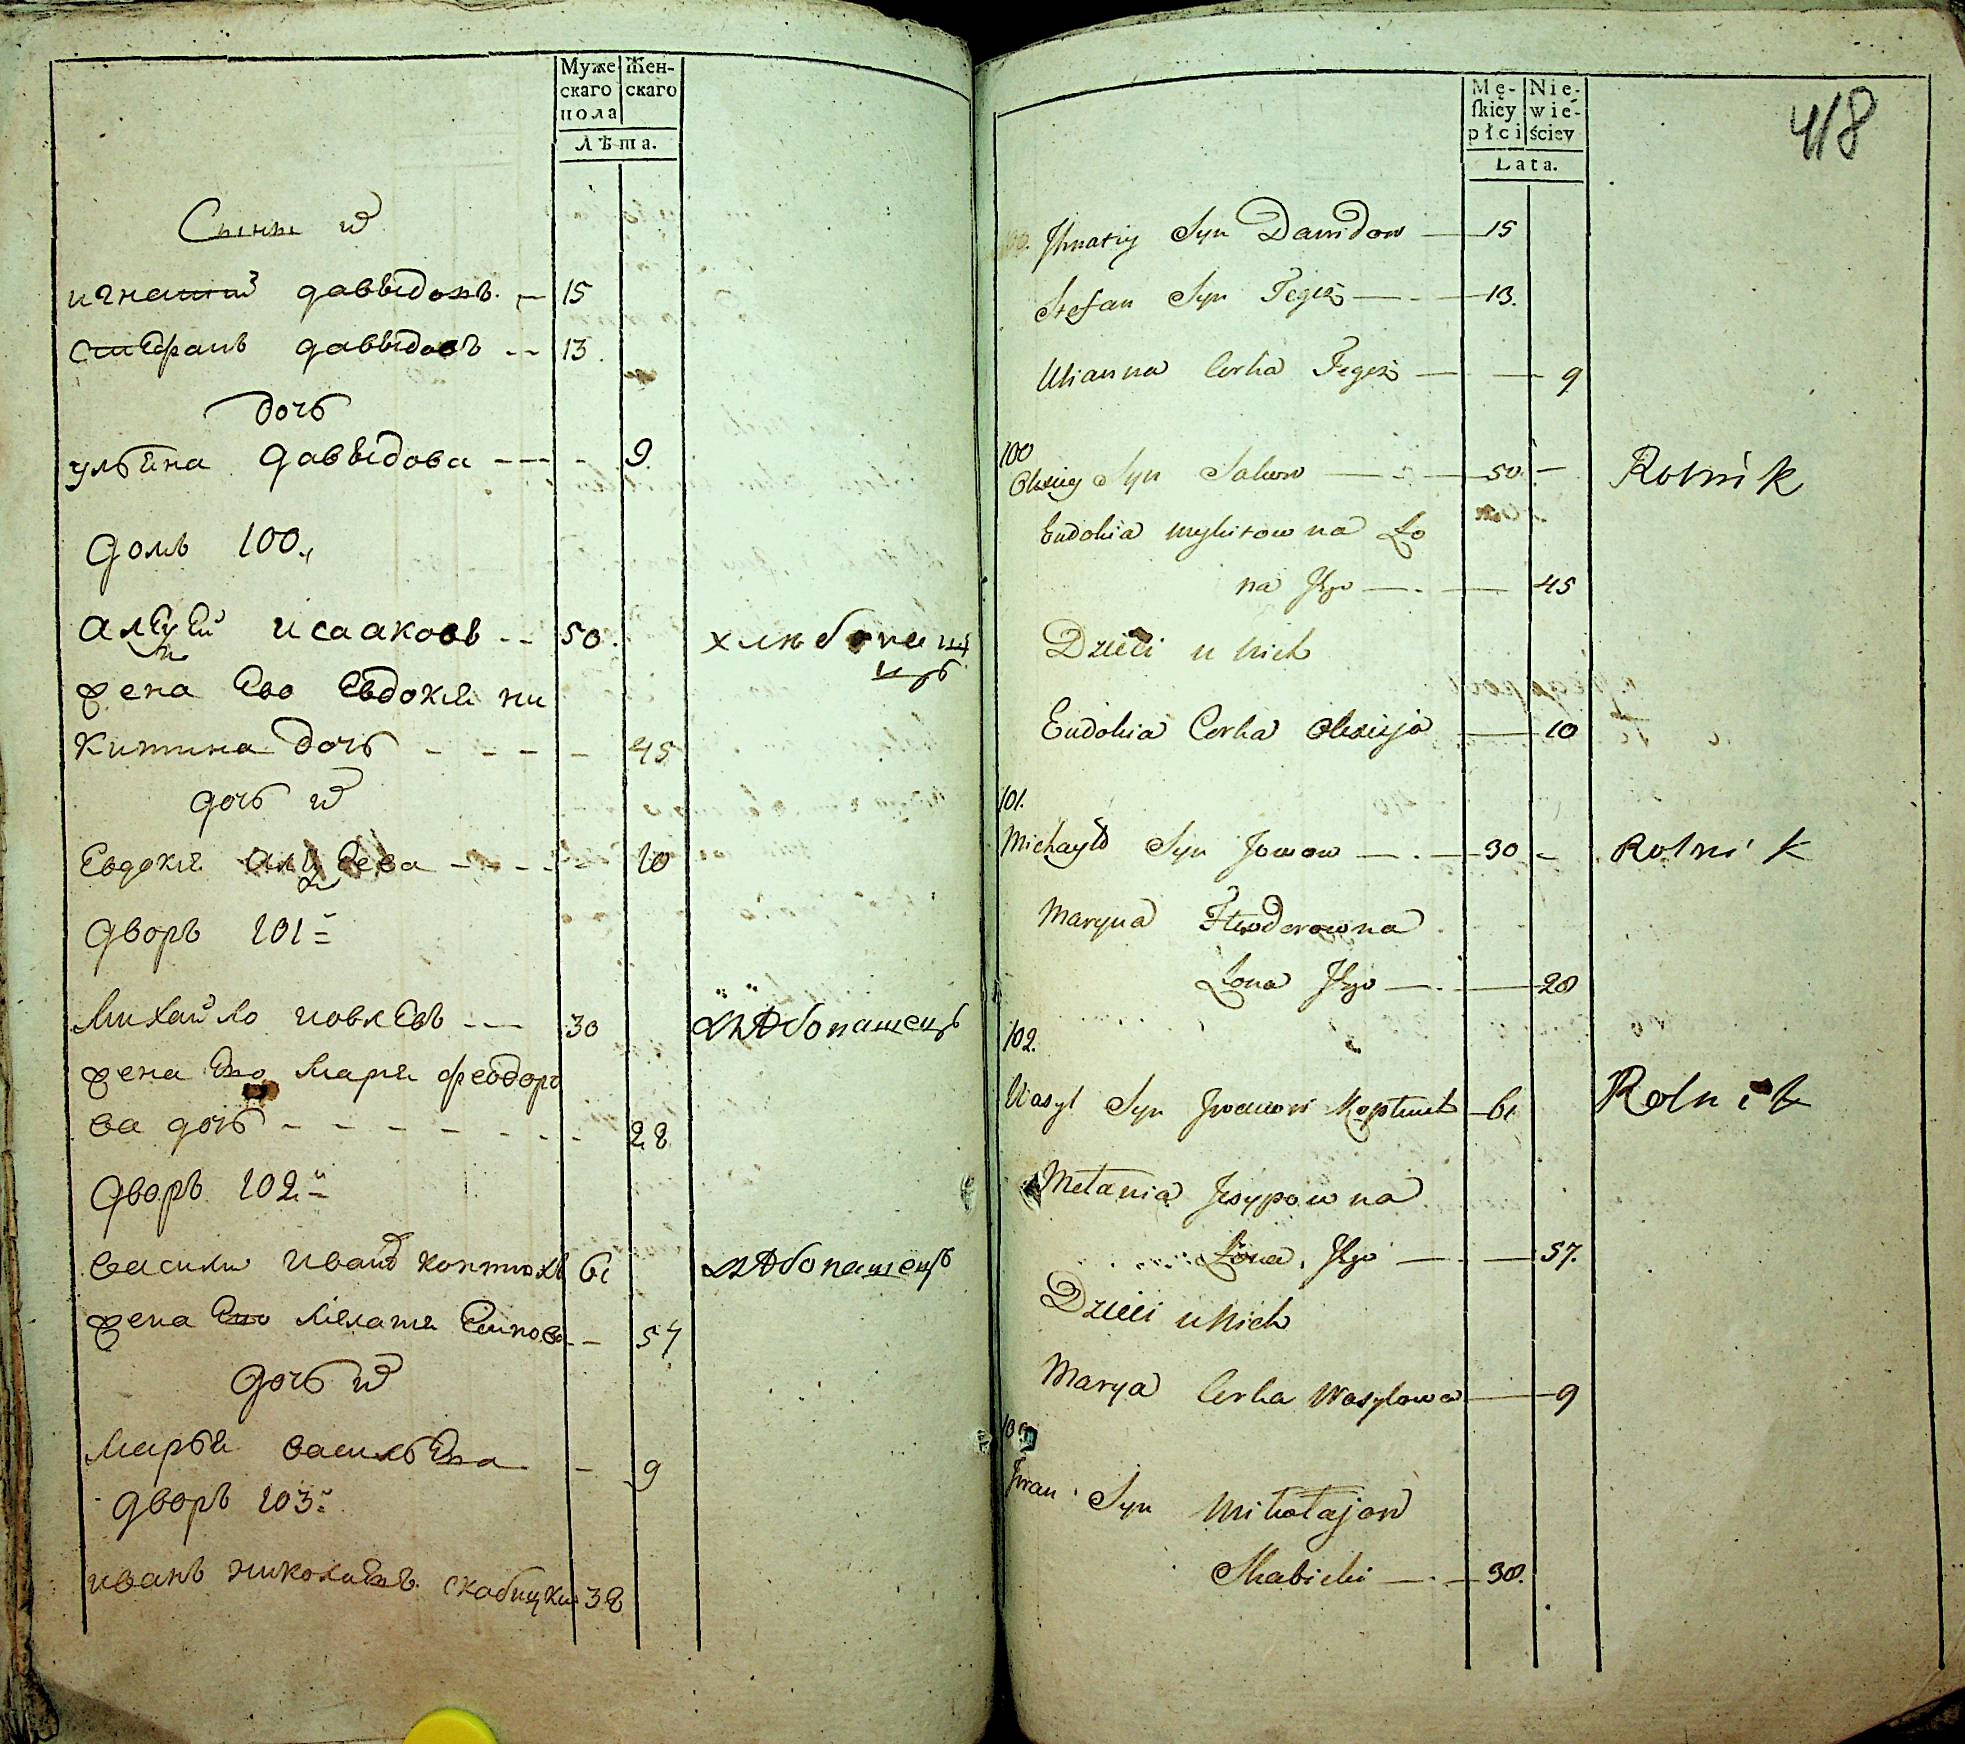 Муже Жен-
скаго скаго
пола
Лѣта.
Сыны
игнатий давыдовъ — 15
стефанъ давыдовъ -- 13.
дочь
ульяна давыдова --- - 9.
домъ 100.
алексей исааковъ -- 50. хлѣбопаш
ецъ
жена его Евдокия ни
китина дочь - - - - 45
дочь
Евдокия алексеева - - - - 10
дворъ 101
михайло иовлевъ --- 30 хлѣбопашецъ
жена его мария феодоро
ва дочь - - - - - - - - 28
дворъ 102
василий иванов коптюхъ 61 хлѣбопашецъ
жена его мелания Есипова - 57
дочь
марья васильева - 9
дворъ 103
иванъ николаевъ скабицки 38
418
Mę- Nie-
ſkiey wie-
płci ściey
Lata.
Ihnatiy Syn Dawidow — 15
Stefan Syn Tegoż — 13.
Ulianna Corka Tegoż — 9
100
Olexiey Syn Sakow — 50. — Rolnik
Eudokia mykitowna Żo
na Jego — 45
Dzieci u nich
Eudokia Corka Olexieja — 10
101.
Michayło Syn Jowow — 30 - Rolnik
Maryna Fteodorowna
Żona Jego — 28
102.
Wasyl Syn Iwanow Koptiuch — 61 Rolnik
Melania Jesypowna
Żona Jego — 57.
Dzieci u Nich
Marya Corka Wasylowa — 9
Iwan Syn Mikołajow
Skabicki — 38.